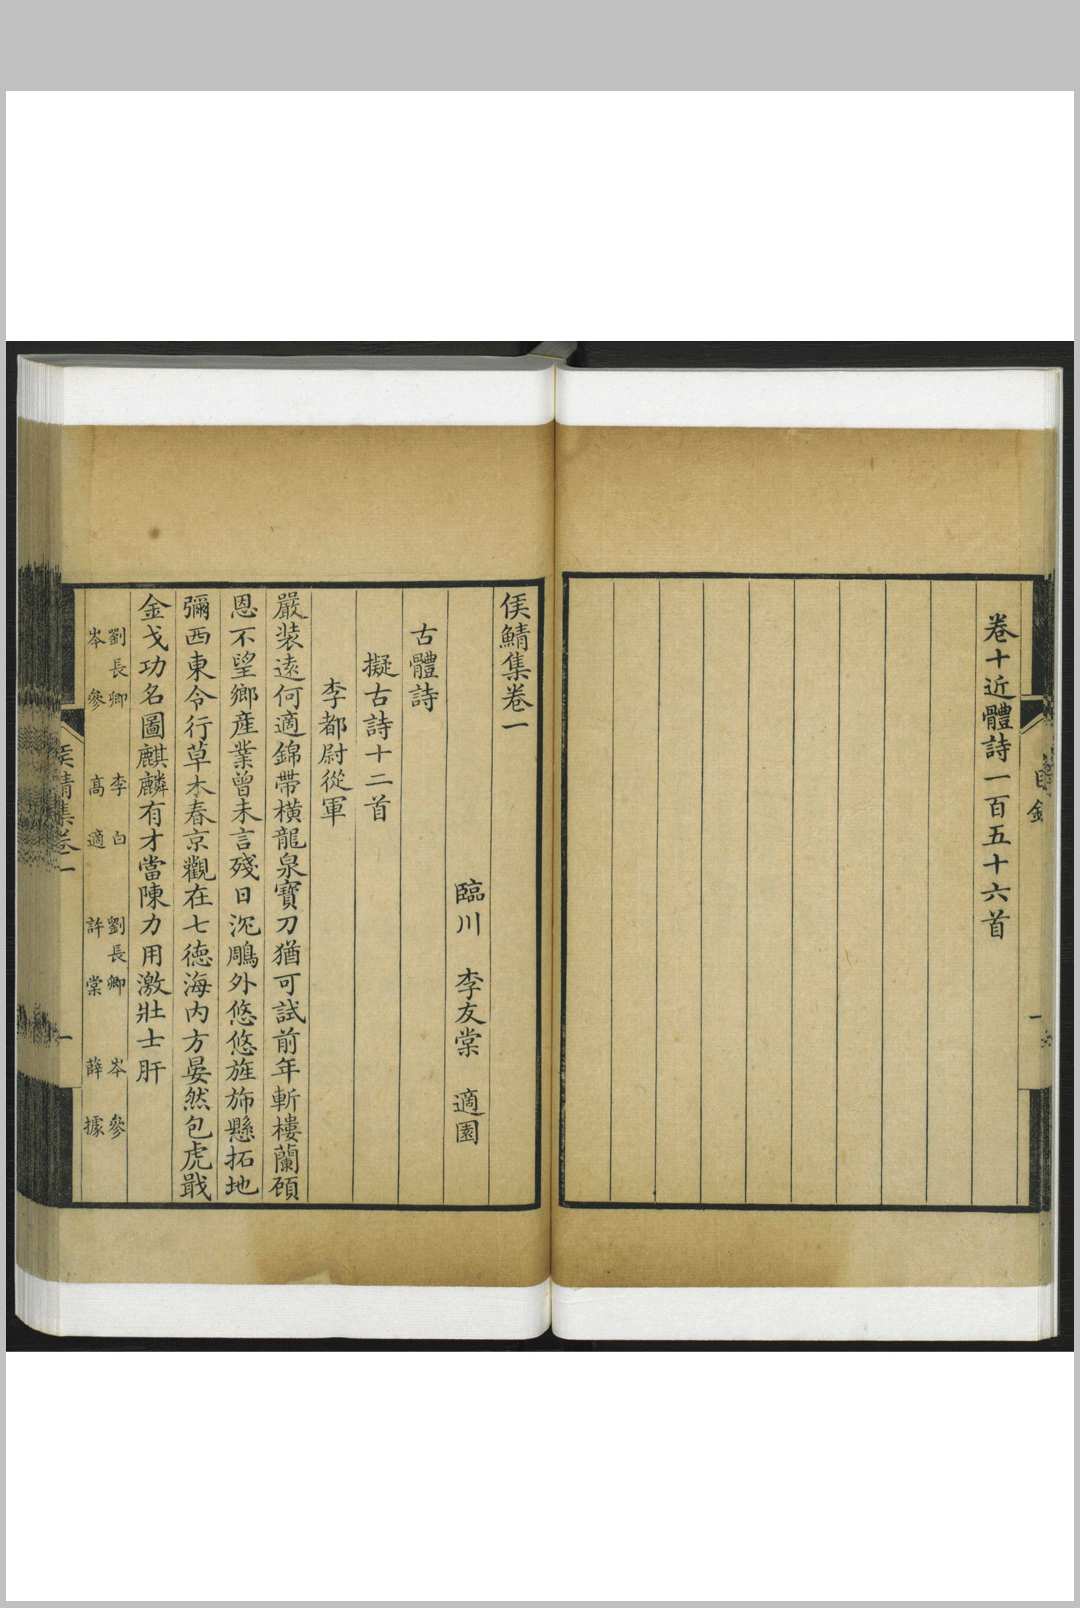 卷十近體詩一百五十六首
目錄
侯鯖集卷一
臨川　李友棠　適園
古體詩
擬古詩十二首
李都尉從軍
嚴裝遠何適錦帶橫龍泉寶刀猶可試前年斬樓蘭顧
恩不望鄉產業曾未言殘日沉鵰外悠悠旌斾懸拓地
彌西東令行草木春京觀在七德海內方晏然包虎戢
金戈功名圖麒麟有才當陳力用激壯士肝
劉長卿　李白　劉長卿　岑參
岑參　高適　許棠　薛據
侯鯖集卷一
一